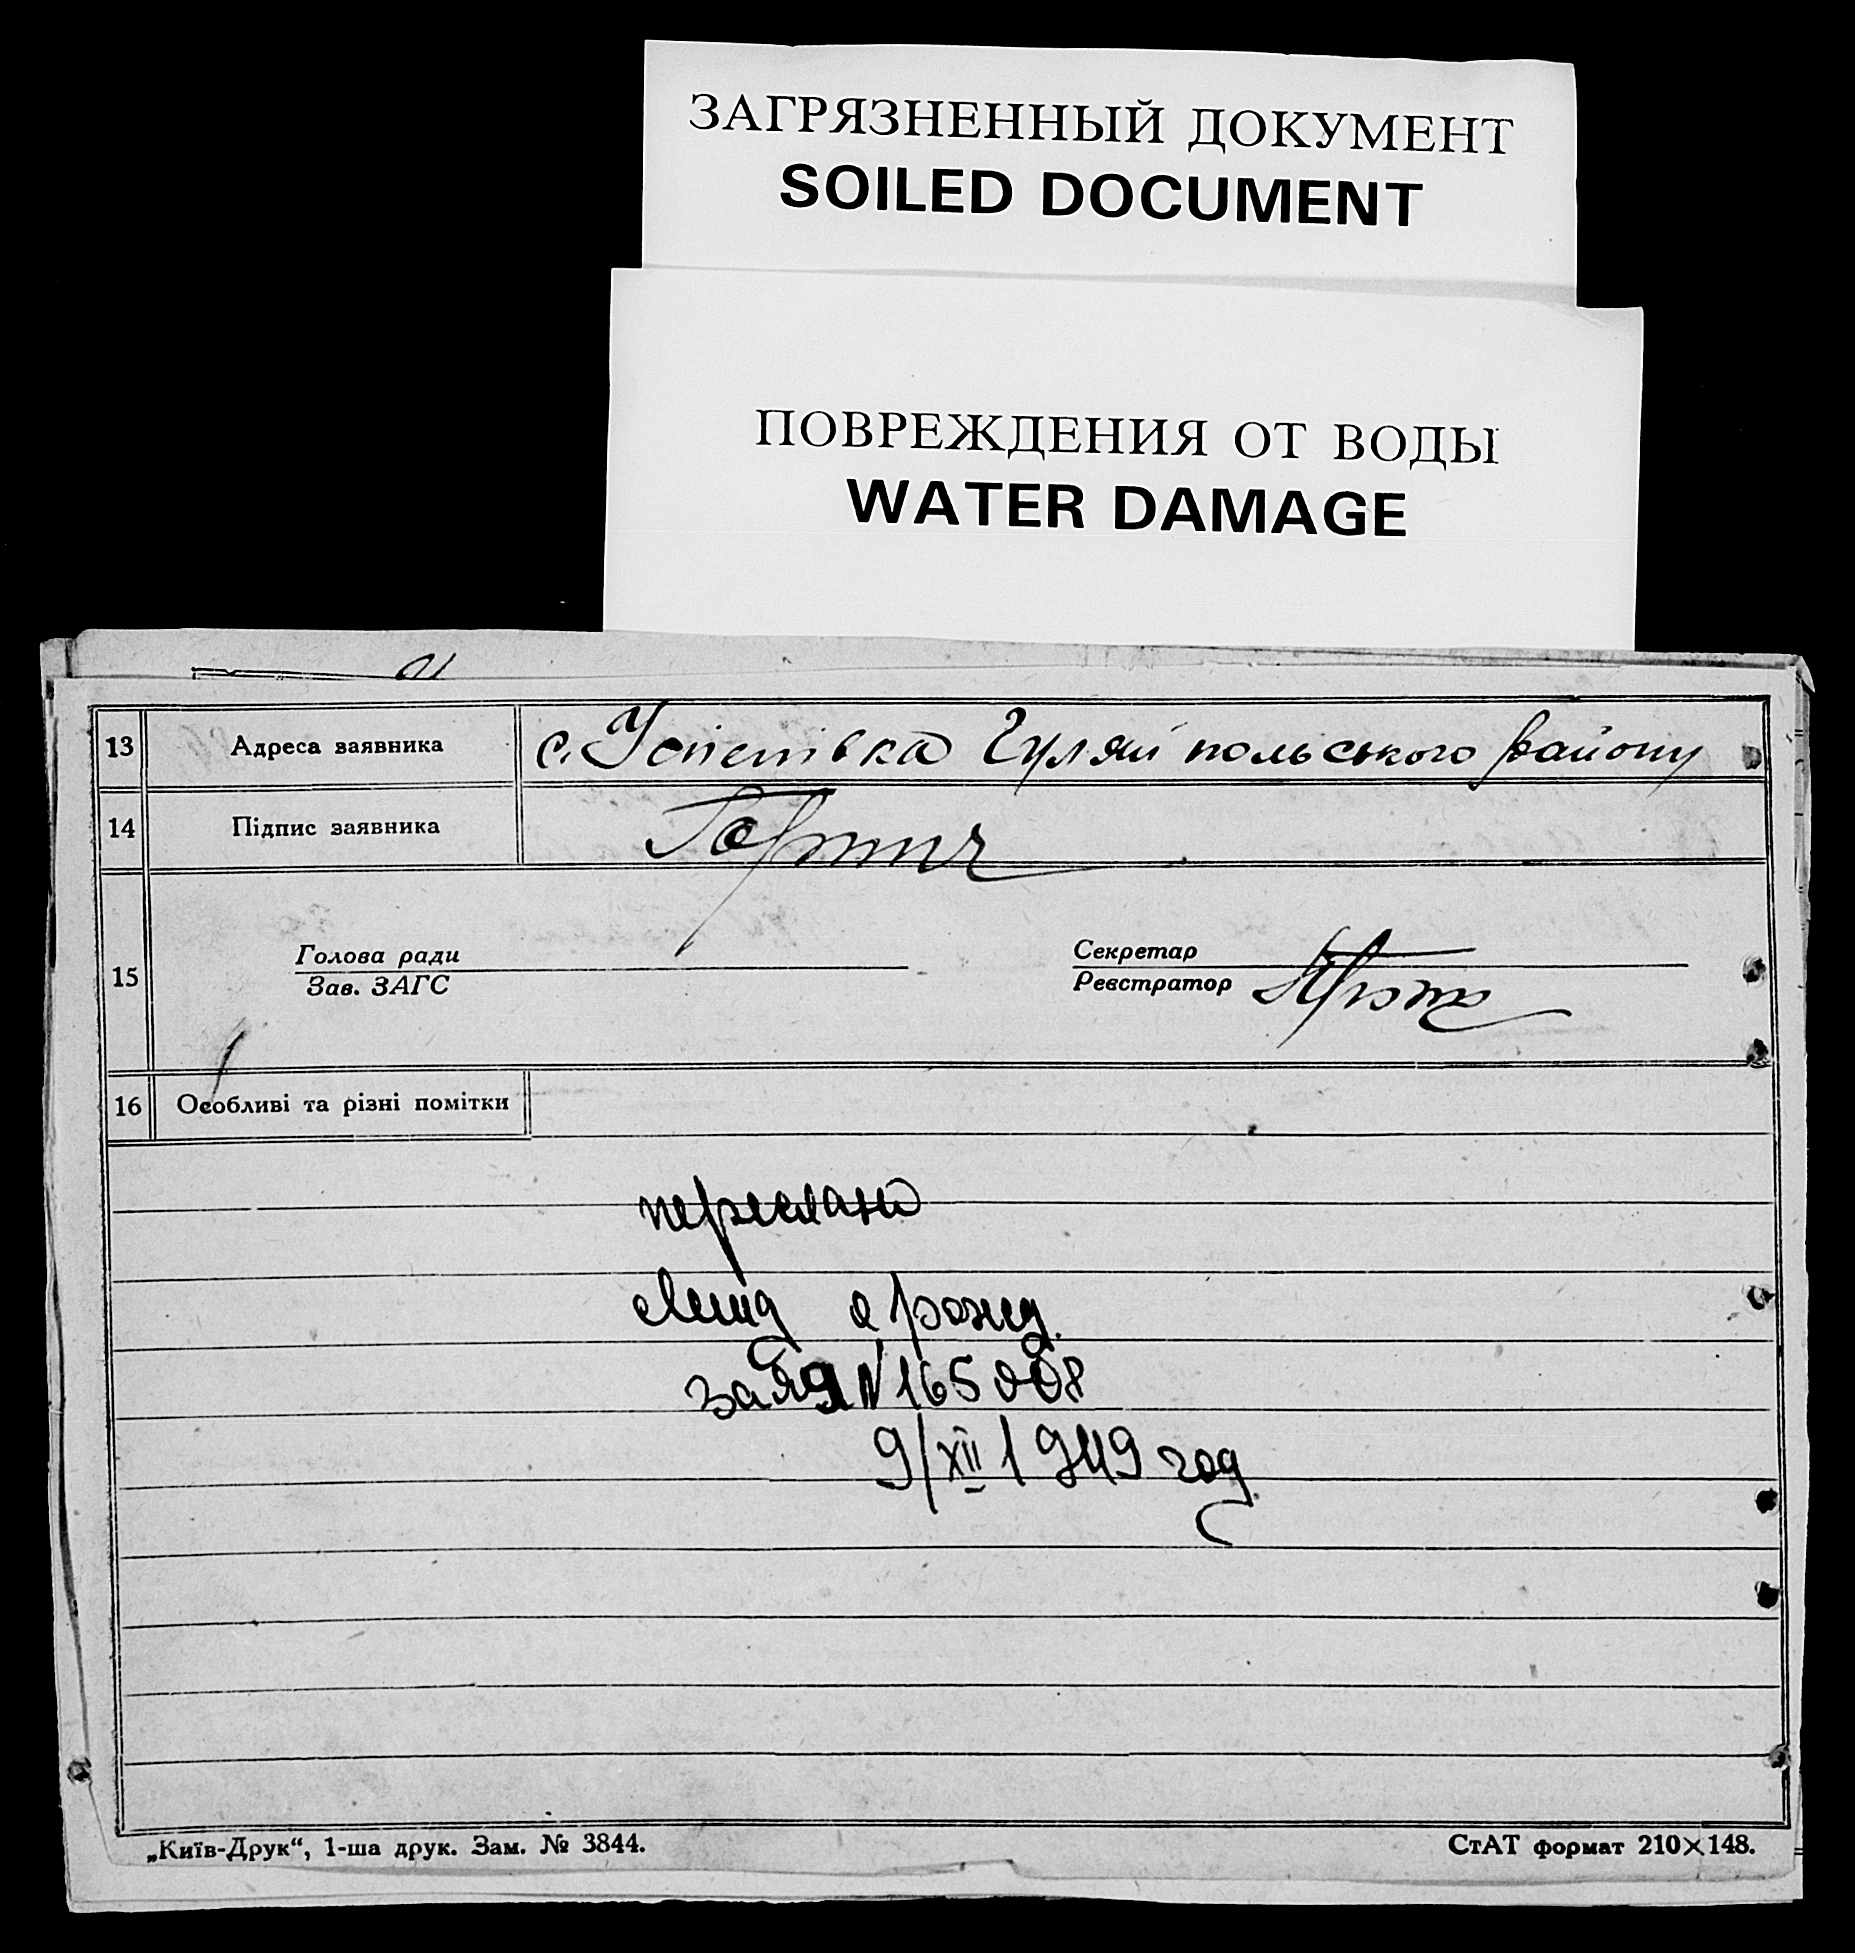 ЗАГРЯЗНЕННЫЙ ДОКУМЕНТ
SOILED DOCUMENT
ПОВРЕЖДЕНИЯ ОТ ВОДЫ
WATER DAMAGE
13 Адреса заявника с. Успенівка Гуляй польського району
14 Підпис заявника
15 Голова ради Секретар
Зав. ЗАГС Реєстратор
16 Особливі та різні помітки
переслано
о рожд.
заяв N 165008
9/XII 1949 год.
„Київ-Друк“, 1-ша друк. Зам. № 3844. СтАТ формат 210×148.